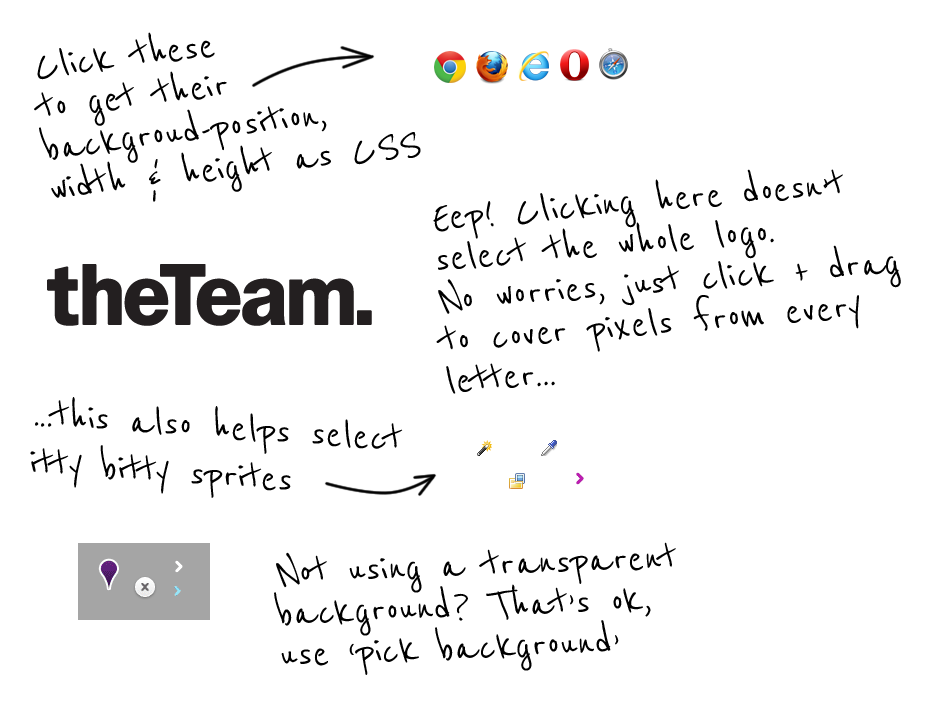 Click these
to get their
backgroud-position,
width & height as CSS
Eep! Clicking here doesnt
select the whole logo.
No worries, just click + drag
to cover pixels from every
letter...
theTeam.
...this also helps select
itty bitty sprites
Not using a transparent
background? That's ok,
use 'pick background'